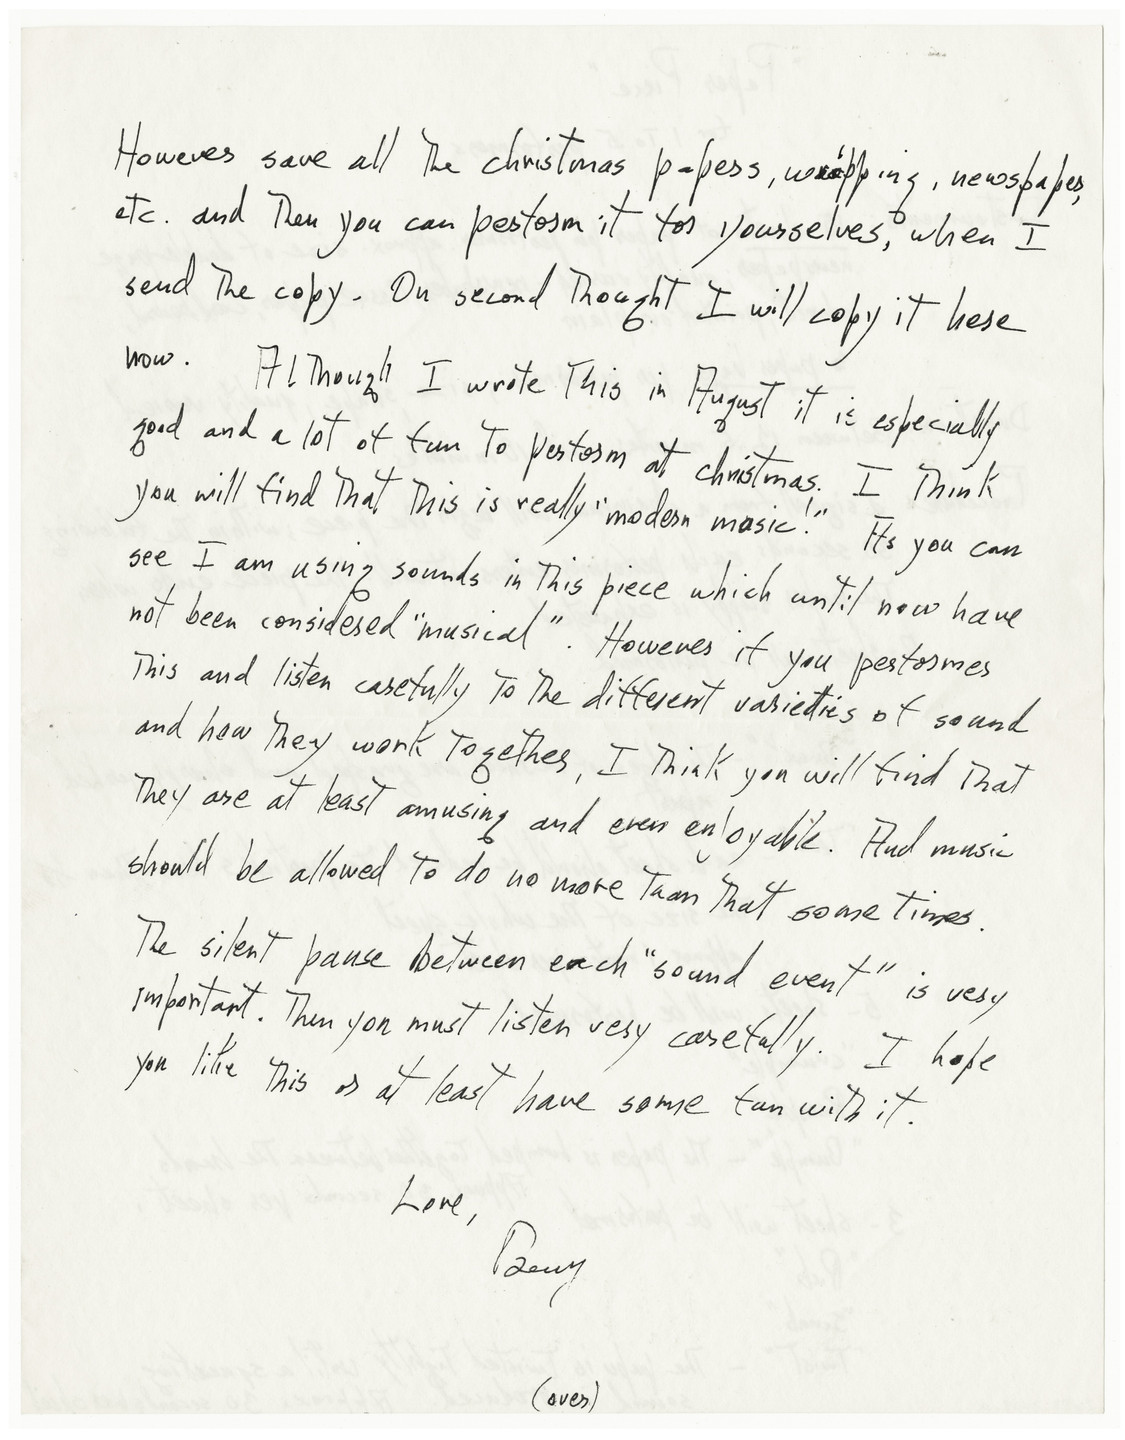 However save all the christmas papers, wrapping, newspaper,
etc. and then you can perform it for yourselves, when I
send the copy. On second thought I will copy it here
now. Although I wrote this in August it is especially
good and a lot of fun to perform at christmas. I think
you will find that this is really "modern music!" As you can
see I am using sounds in this piece which until now have
not been considered "musical". However if you performes
this and listen carefully to the different varieties of sound
and how they work together, I think you will find that
they are at least amusing and even enjoyable. And music
should be allowed to do no more than that sometimes.
The silent pause between each "sound event" is very
important. Then you must listen very carefully. I hope
you like this or at least have some fun with it.
Love,
Benny
(over)